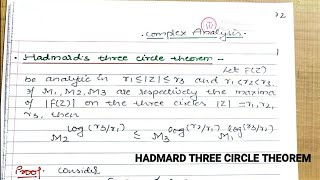 32
Complex Analysis
Hadmard's three circle theorem -
Let F(Z)
be analytic in r1≤|Z|≤r3 and r1<r2<r3.
If M1, M2, M3 are respectively the maxima
of |F(Z)| on the three circles |Z| = r1, r2,
r3, then
M2 log(r3/r1) ≤ M3 log(r2/r1) M1 log(r3/r2)
HADMARD THREE CIRCLE THEOREM
Proof: Consider